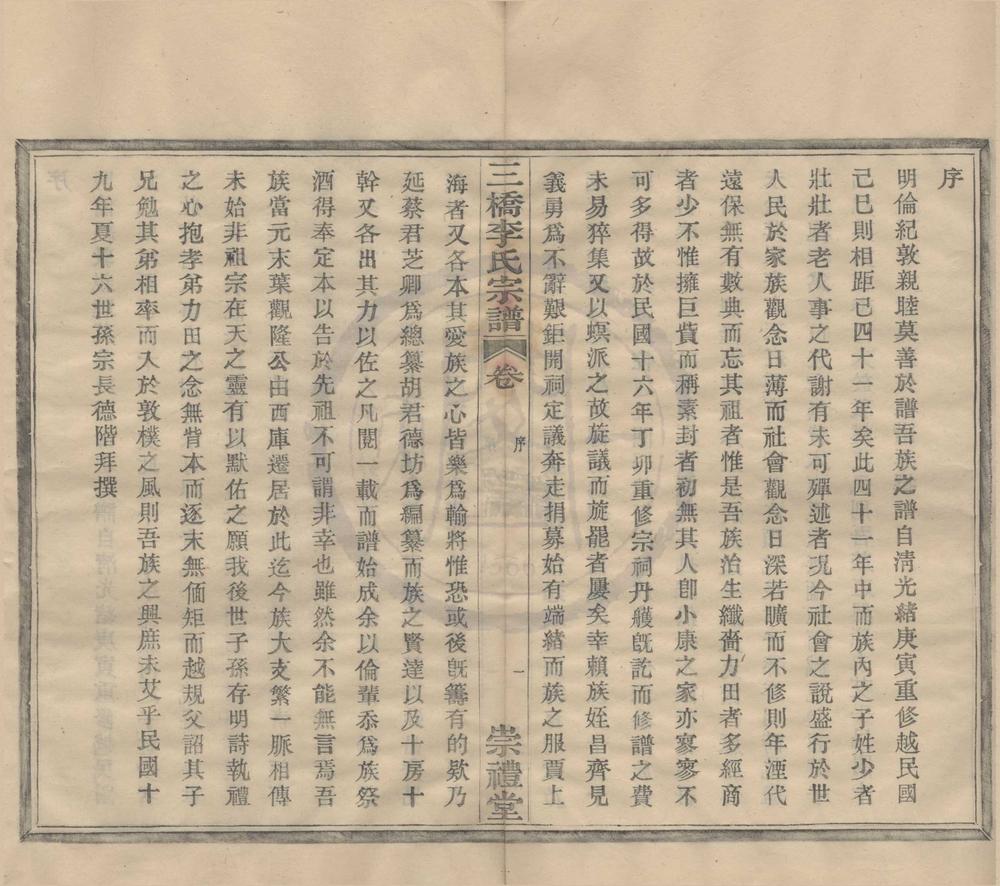 序
明倫紀敦親睦莫善於譜吾族之譜自清光緒庚寅重修越民國
己巳則相距已四十一年矣此四十一年中而族內之子姓少者
壯壯者老人事之代謝有未可殫述者現今社會之說盛行於世
人民於家族觀念日薄而社會觀念日深若曠而不修則年湮代
遠保無有數典而忘其祖者惟是吾族治生纖嗇力田者多經商
者少不惟擁巨貲而稱素封者初無其人卽小康之家亦寥寥不
可多得故於民國十六年丁卯重修宗祠丹艧旣訖而修譜之費
未易猝集又以螟派之故旋議而旋罷者屢矣幸賴族姪昌齊見
義勇為不辭艱鉅開祠定議奔走捐募始有端緒而族之服賈上
三橋李氏宗譜 卷 序 一 崇禮堂
海者又各本其愛族之心皆樂為輸將惟恐或後旣籌有的欵乃
延蔡君芝卿為總纂胡君德坊為編纂而族之賢達以及十房十
幹又各出其力以佐之凡閱一載而譜始成余以倫輩忝為族祭
酒得奉定本以告於先祖不可謂非幸也雖然余不能無言焉吾
族當元末葉觀隆公由西庫遷居於此迄今族大支繁一脈相傳
未始非祖宗在天之靈有以默佑之願我後世子孫存明詩執禮
之心抱孝弟力田之念無背本而逐末無偭矩而越規父詔其子
兄勉其弟相率而入於敦樸之風則吾族之興庶未艾乎民國十
九年夏十六世孫宗長德階拜撰